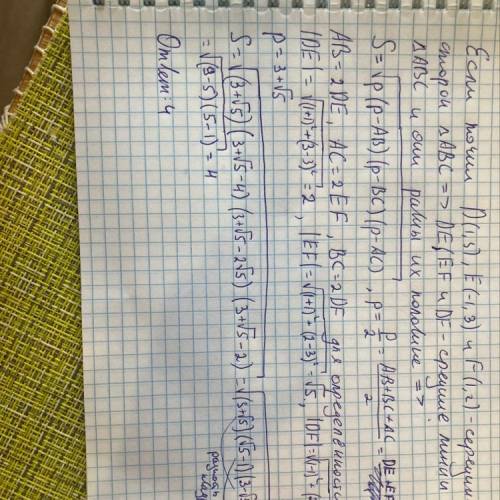 Если точки D(1,3), E(-1,3) и F(1,2) - середины
сторон ΔABC => DE, EF и DF - средние линии
ΔABC и они равны их половине =>
S = √(p(p-AB)(p-BC)(p-AC)), p = P/2 = (AB+BC+AC)/2 =
AB = 2DE, AC = 2EF, BC = 2DF для определённост
|DE| = √((1+1)²+(3-3)²) = 2, |EF| = √((1+1)²+(2-3)²) = √5, |DF| = √(1-1)²+
p = 3+√5
S = √((3+√5)(3+√5-4)(3+√5-2√5)(3+√5-2)) = √((3+√5)(√5-1)(3-√5
= √((9-5)(5-1)) = 4
Ответ: 4